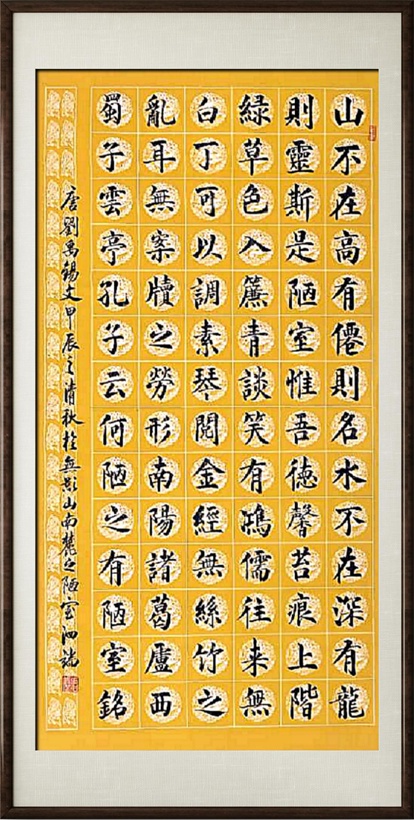 山不在高有僊則名水不在深有龍
則靈斯是陋室惟吾德馨苔痕上階
緑草色入簾青談笑有鴻儒往来無
白丁可以調素琴閱金經無絲竹之
亂耳無案牘之勞形南陽諸葛廬西
蜀子雲亭孔子云何陋之有陋室銘
唐劉禹錫文甲辰之清秋於無影山南麓之陋室泗